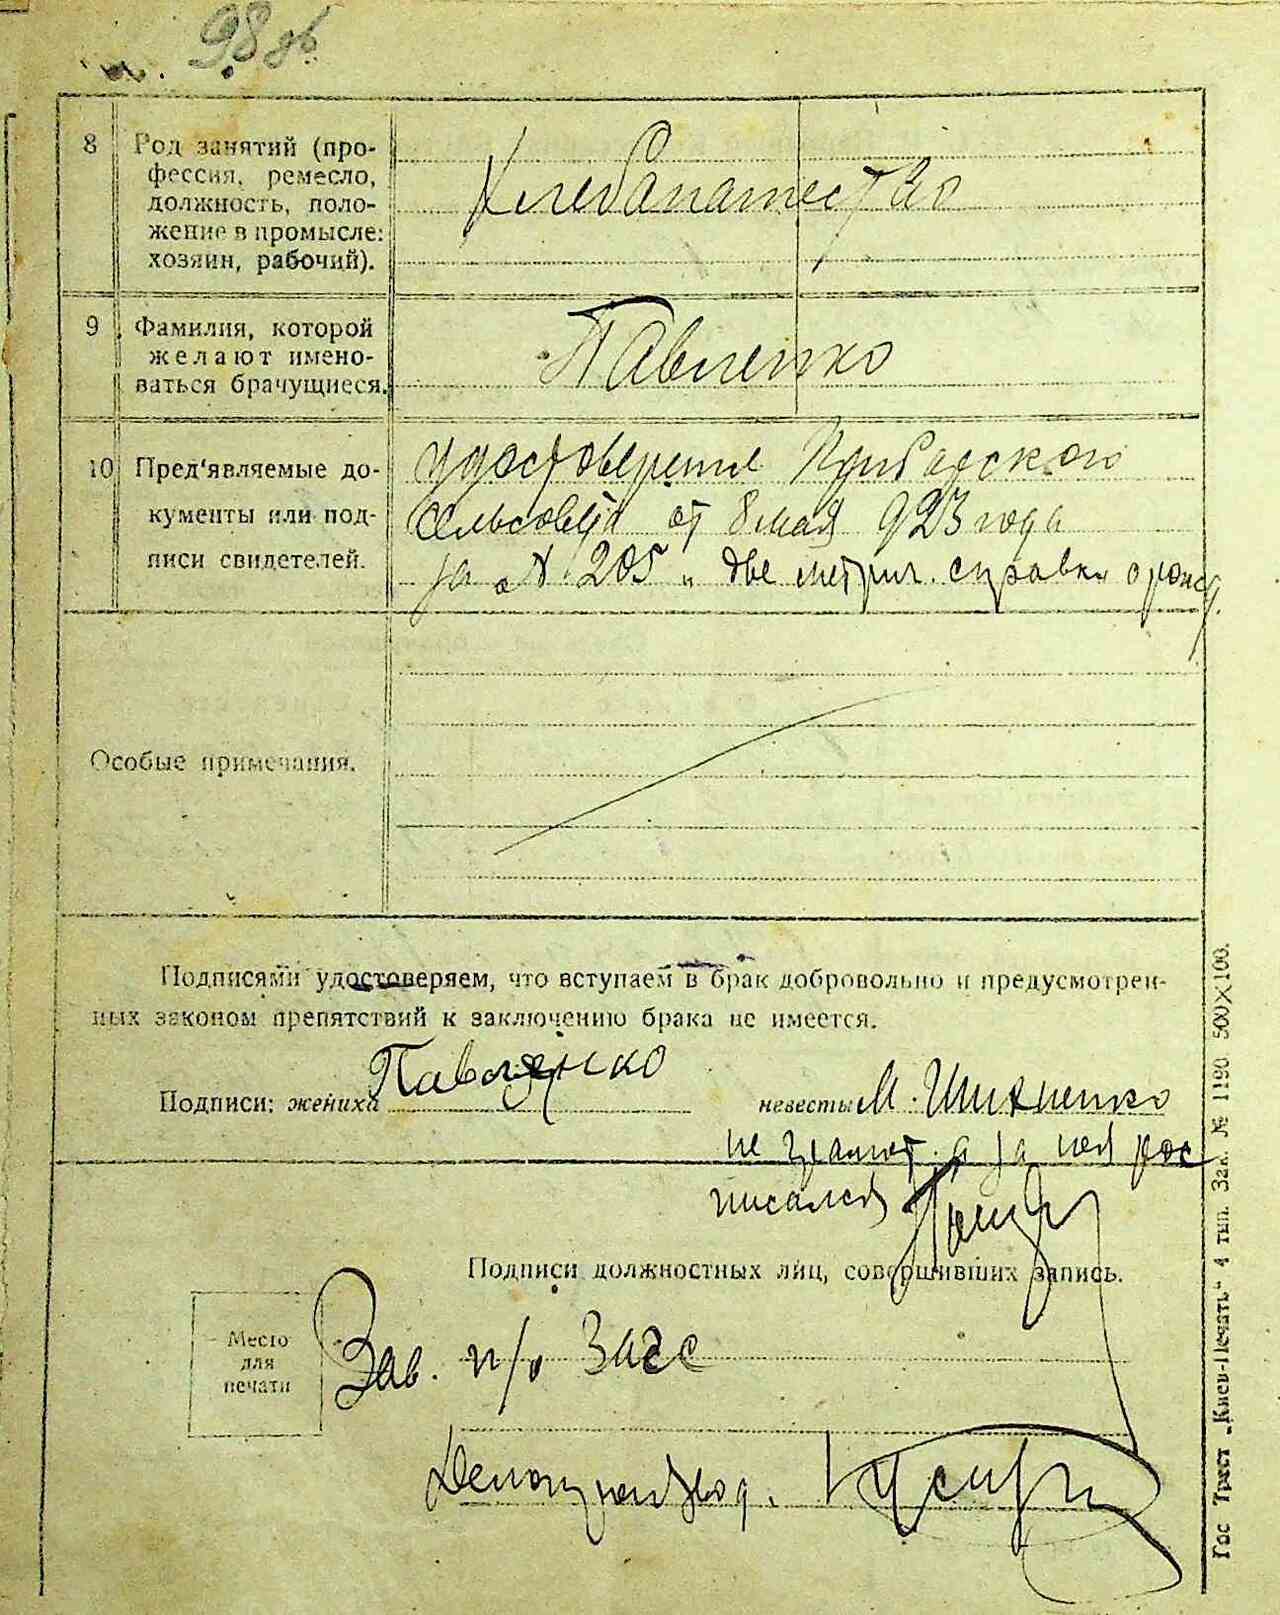 98 об.
8 Род занятий (про-
фессия, ремесло,
должность, поло-
жение в промысле:
хозяин, рабочий).
Хлебапашество
9 Фамилия, которой
желают имено-
ваться брачущиеся.
Павленко
10 Пред'являемые до-
кументы или под-
писи свидетелей.
удостоверение
сельсовета от 8 мая 923 года
за № 205 и две метрич. справки о рожд.
Особые примечания.
Подписями удостоверяем, что вступаем в брак добровольно и предусмотрен-
ных законом препятствий к заключению брака не имеется.
Подписи: жениха Павленко невесты М.
не грамот. а за неё рос
писался
Подписи должностных лиц, совершивших запись.
Место
для
печати
Зав. п/о Загс
Делопроизвод.
Гос Трест „Киев-Печать" 4 тип. Зак. № 1190 500X100.